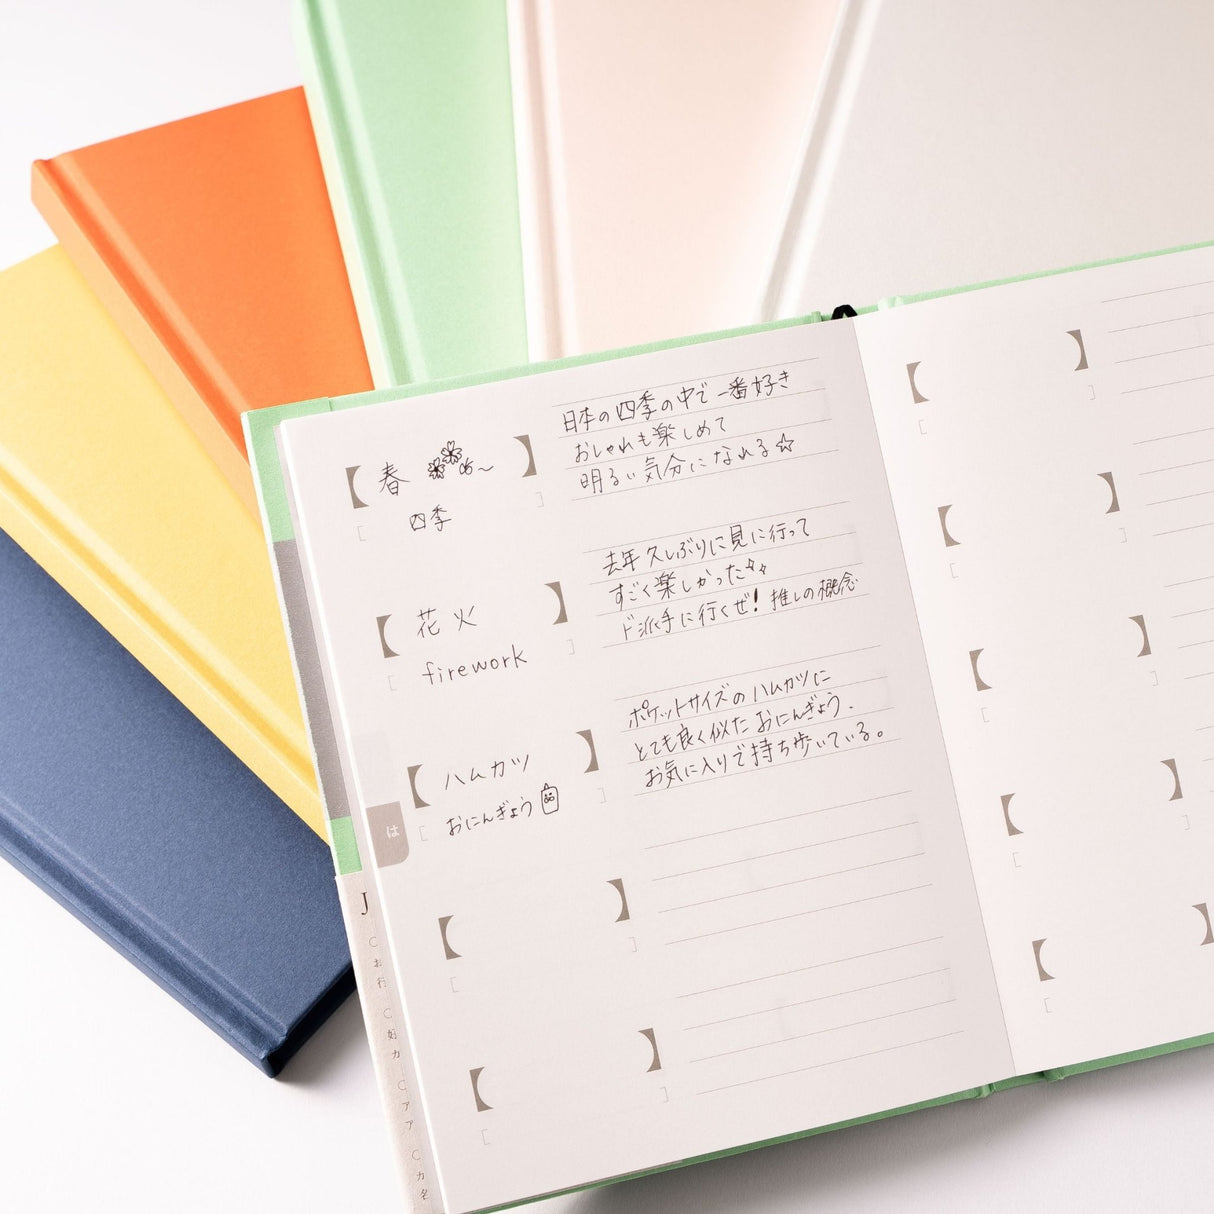 春
四季
日本の四季の中で一番好き
おしゃれも楽しめて
明るい気分になれる☆
花火
firework
去年久しぶりに見に行って
すごく楽しかった
ド派手に行くぜ！推しの概念
ハムカツ
おにんぎょう
ポケットサイズのハムカツに
とても良く似たおにんぎょう、
お気に入りで持ち歩いている。
は
J